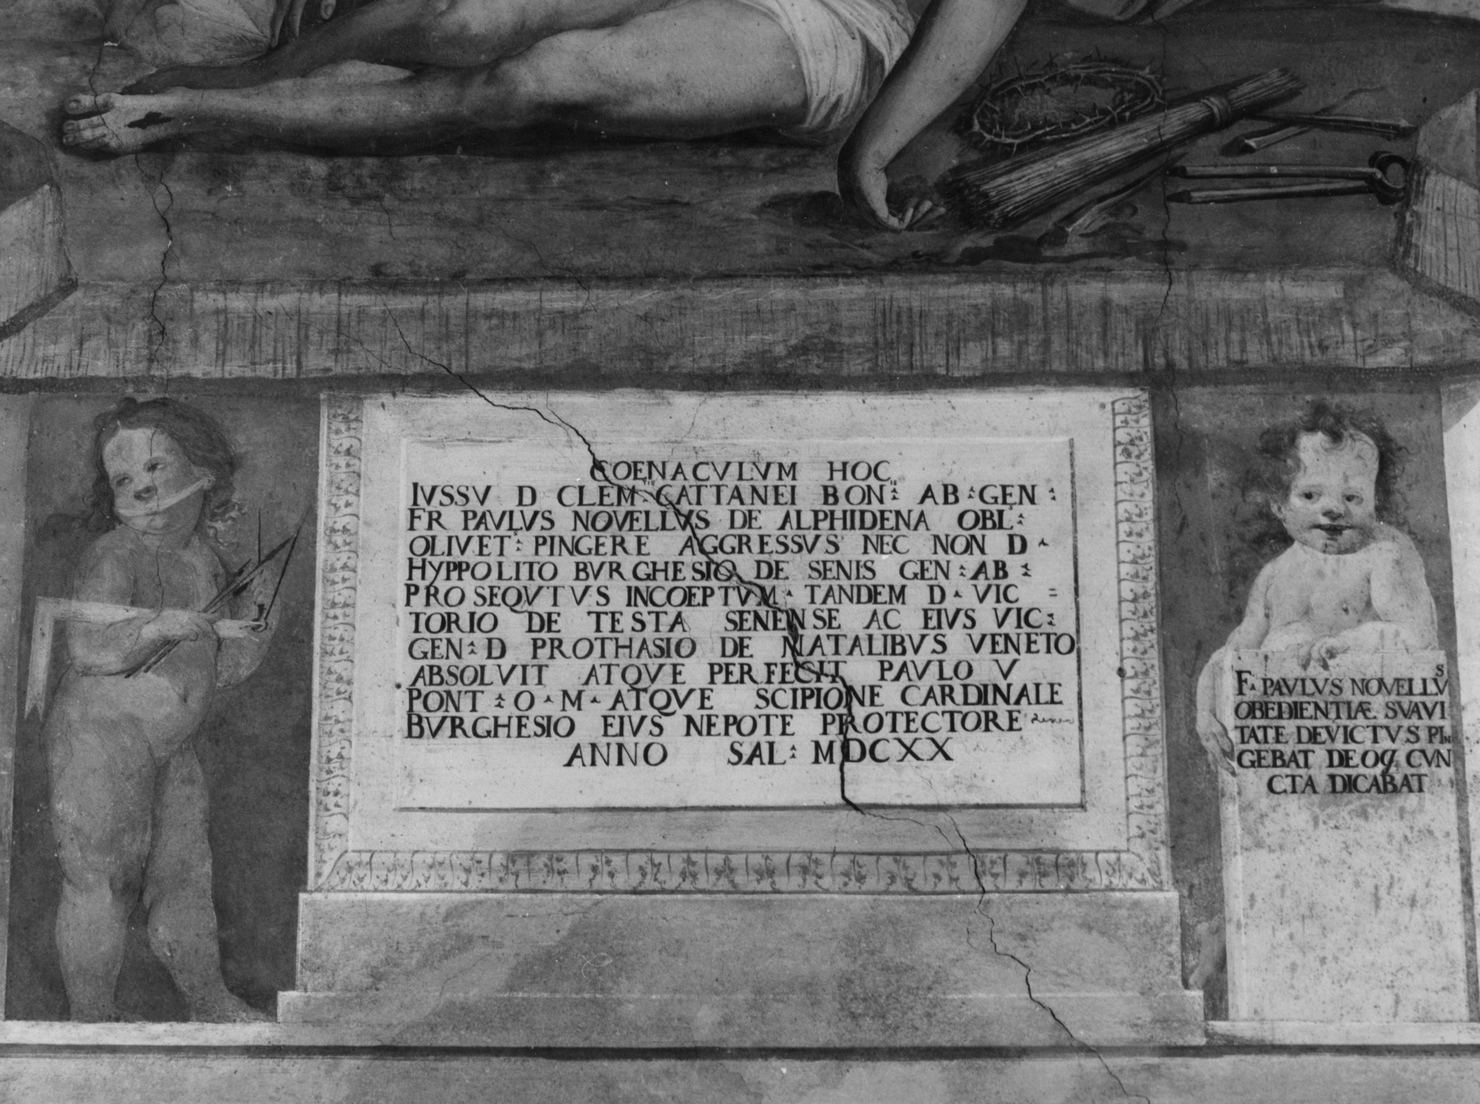 COENACVLVM HOC
IVSSV D CLEM CATTANEI BON: AB: GEN:
FR PAVLVS NOVELLVS DE ALPHIDENA OBL:
OLIVET: PINGERE AGGRESSVS NEC NON D
HYPPOLITO BVRGHESIO DE SENIS GEN: AB:
PROSEQVTVS INCOEPTVM TANDEM D VIC=
TORIO DE TESTA SENENSE AC EIVS VIC:
GEN: D PROTHASIO DE NATALIBVS VENETO
ABSOLVIT ATQVE PERFECIT PAVLO V
PONT: O M ATQVE SCIPIONE CARDINALE
BVRGHESIO EIVS NEPOTE PROTECTORE
ANNO SAL: MDCXX
F. PAVLVS NOVELLVS
OBEDIENTIÆ SVAVI
TATE DEVICTVS PIN
GEBAT DEOQ CVN
CTA DICABAT